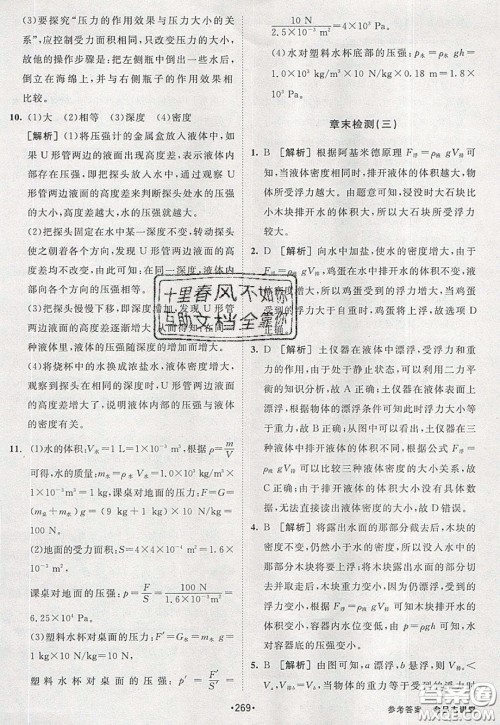 (3)要探究“压力的作用效果与压力大小的关系”,应控制受力面积相同,只改变压力的大小,
故他的操作步骤是:把左侧瓶子装一些水后,
倒立在海绵上,并与右侧瓶子的作用效果相
比较。
10. (1)大 (2)相等 (3)深度 (4)密度
[解析] (1)将压强计的金属盒放入液体中,如
果 U 形管两边的液面出现高度差,表示液体内
部存在压强,即探头受到水的压强,U 形管两边
的高度差用来判断探头处水的压强
的大小,高度差越大,水的压强就越大。
(2)把探头固定在水中某一深度不变,转动使它
朝着各个方向,发现 U 形管两边液面的高
度差均不改变,由此可知:同一深度,水向各个
方向的压强相等。
(3)把探头慢慢下移,即深度增加,发现 U 形管
两边液面的高度差逐渐增大,
种液体,液体的压强随深度的增加而增大。
(4)将烧杯中的水换成浓盐水,液体密度增大,
观察到探头在相同的深度时 U 形管两边液面的
高度差变大了,说明液体内部的压强与液体的
密度有关。
11. (1)水的体积:V水=1 L=1×10⁻³ m³,根据 ρ=m/V
可得,水的质量:m水=ρ水V水=1.0×10³ kg/m³×
1×10⁻³ m³=1 kg,课桌对地面的压力:F=G=
(m桌+m水)g=(9 kg+1 kg)×10 N/kg=
100 N。
(2)地面的受力面积:S=4×4×10⁻³ m²=
1.6×10⁻² m²,
课桌对地面的压强:p=F/S=100 N/1.6×10⁻² m²=
6.25×10³ Pa。
(3)塑料水杯对桌面的压力:F′=G水=m水g=
1 kg×10 N/kg=10 N,
塑料水杯对桌面的压强:p′=F′/S′=
10 N/2.5×10⁻³ m²=4×10³ Pa。
(4)水对塑料水杯底部的压强:p水=ρ水gh=
1.0×10³ kg/m³×10 N/kg×0.18 m=1.8×
10³ Pa。
章末检测(三)
1. B [解析] 根据阿基米德原理 F浮=ρ液gV排可
知,在同种液体中,物体排开液体的体积越大,物
体所受浮力越大。由题意可知,浸没时大石块比
小木块排开水的体积大,所以大石块所受浮力
较大。
2. D [解析] 向水中加盐,使水的密度增大,由于
F浮=ρ液gV排,鸡蛋在水中排开水的体积不变,
但水的密度增大,则鸡蛋受到的浮力增大,当鸡
蛋受到的浮力大于重力时,鸡蛋上浮,故选项 D
正确。
3. D [解析] 土仪器在液体中漂浮,受重力和浮力
的作用,由于处于静止状态,可以利用二力平
衡的知识分析,故 A 正确;土仪器在液体中漂浮,
根据物体的漂浮条件可知此时受到的浮力大小
等于重力,故 B 正确;由于漂浮,仪器在三种液
体中排开液体的体积不同,故可以用来比较三种
液体密度的大小,故 C 正确;土仪器在三种液体
中,排开液体的体积大小不一样,故 D 错误。
4. B [解析] 将露出水面的那部分截去后,木块的
密度不变,木块仍漂浮;将露出水面的那部分截
去后,木块会向上浮;木块剩余部分仍浮在水面
上,因为木块重力变小,则受到的浮力变小,由于
浮力变小,根据 F浮=ρ水gV排可知,木块排开水
的体积变小,容器内水位变低,由 p=ρgh 可知,水
对容器底的压强变小。
5. B [解析]
十里春风不如你
自助文档全靠你
·269·
参考答案